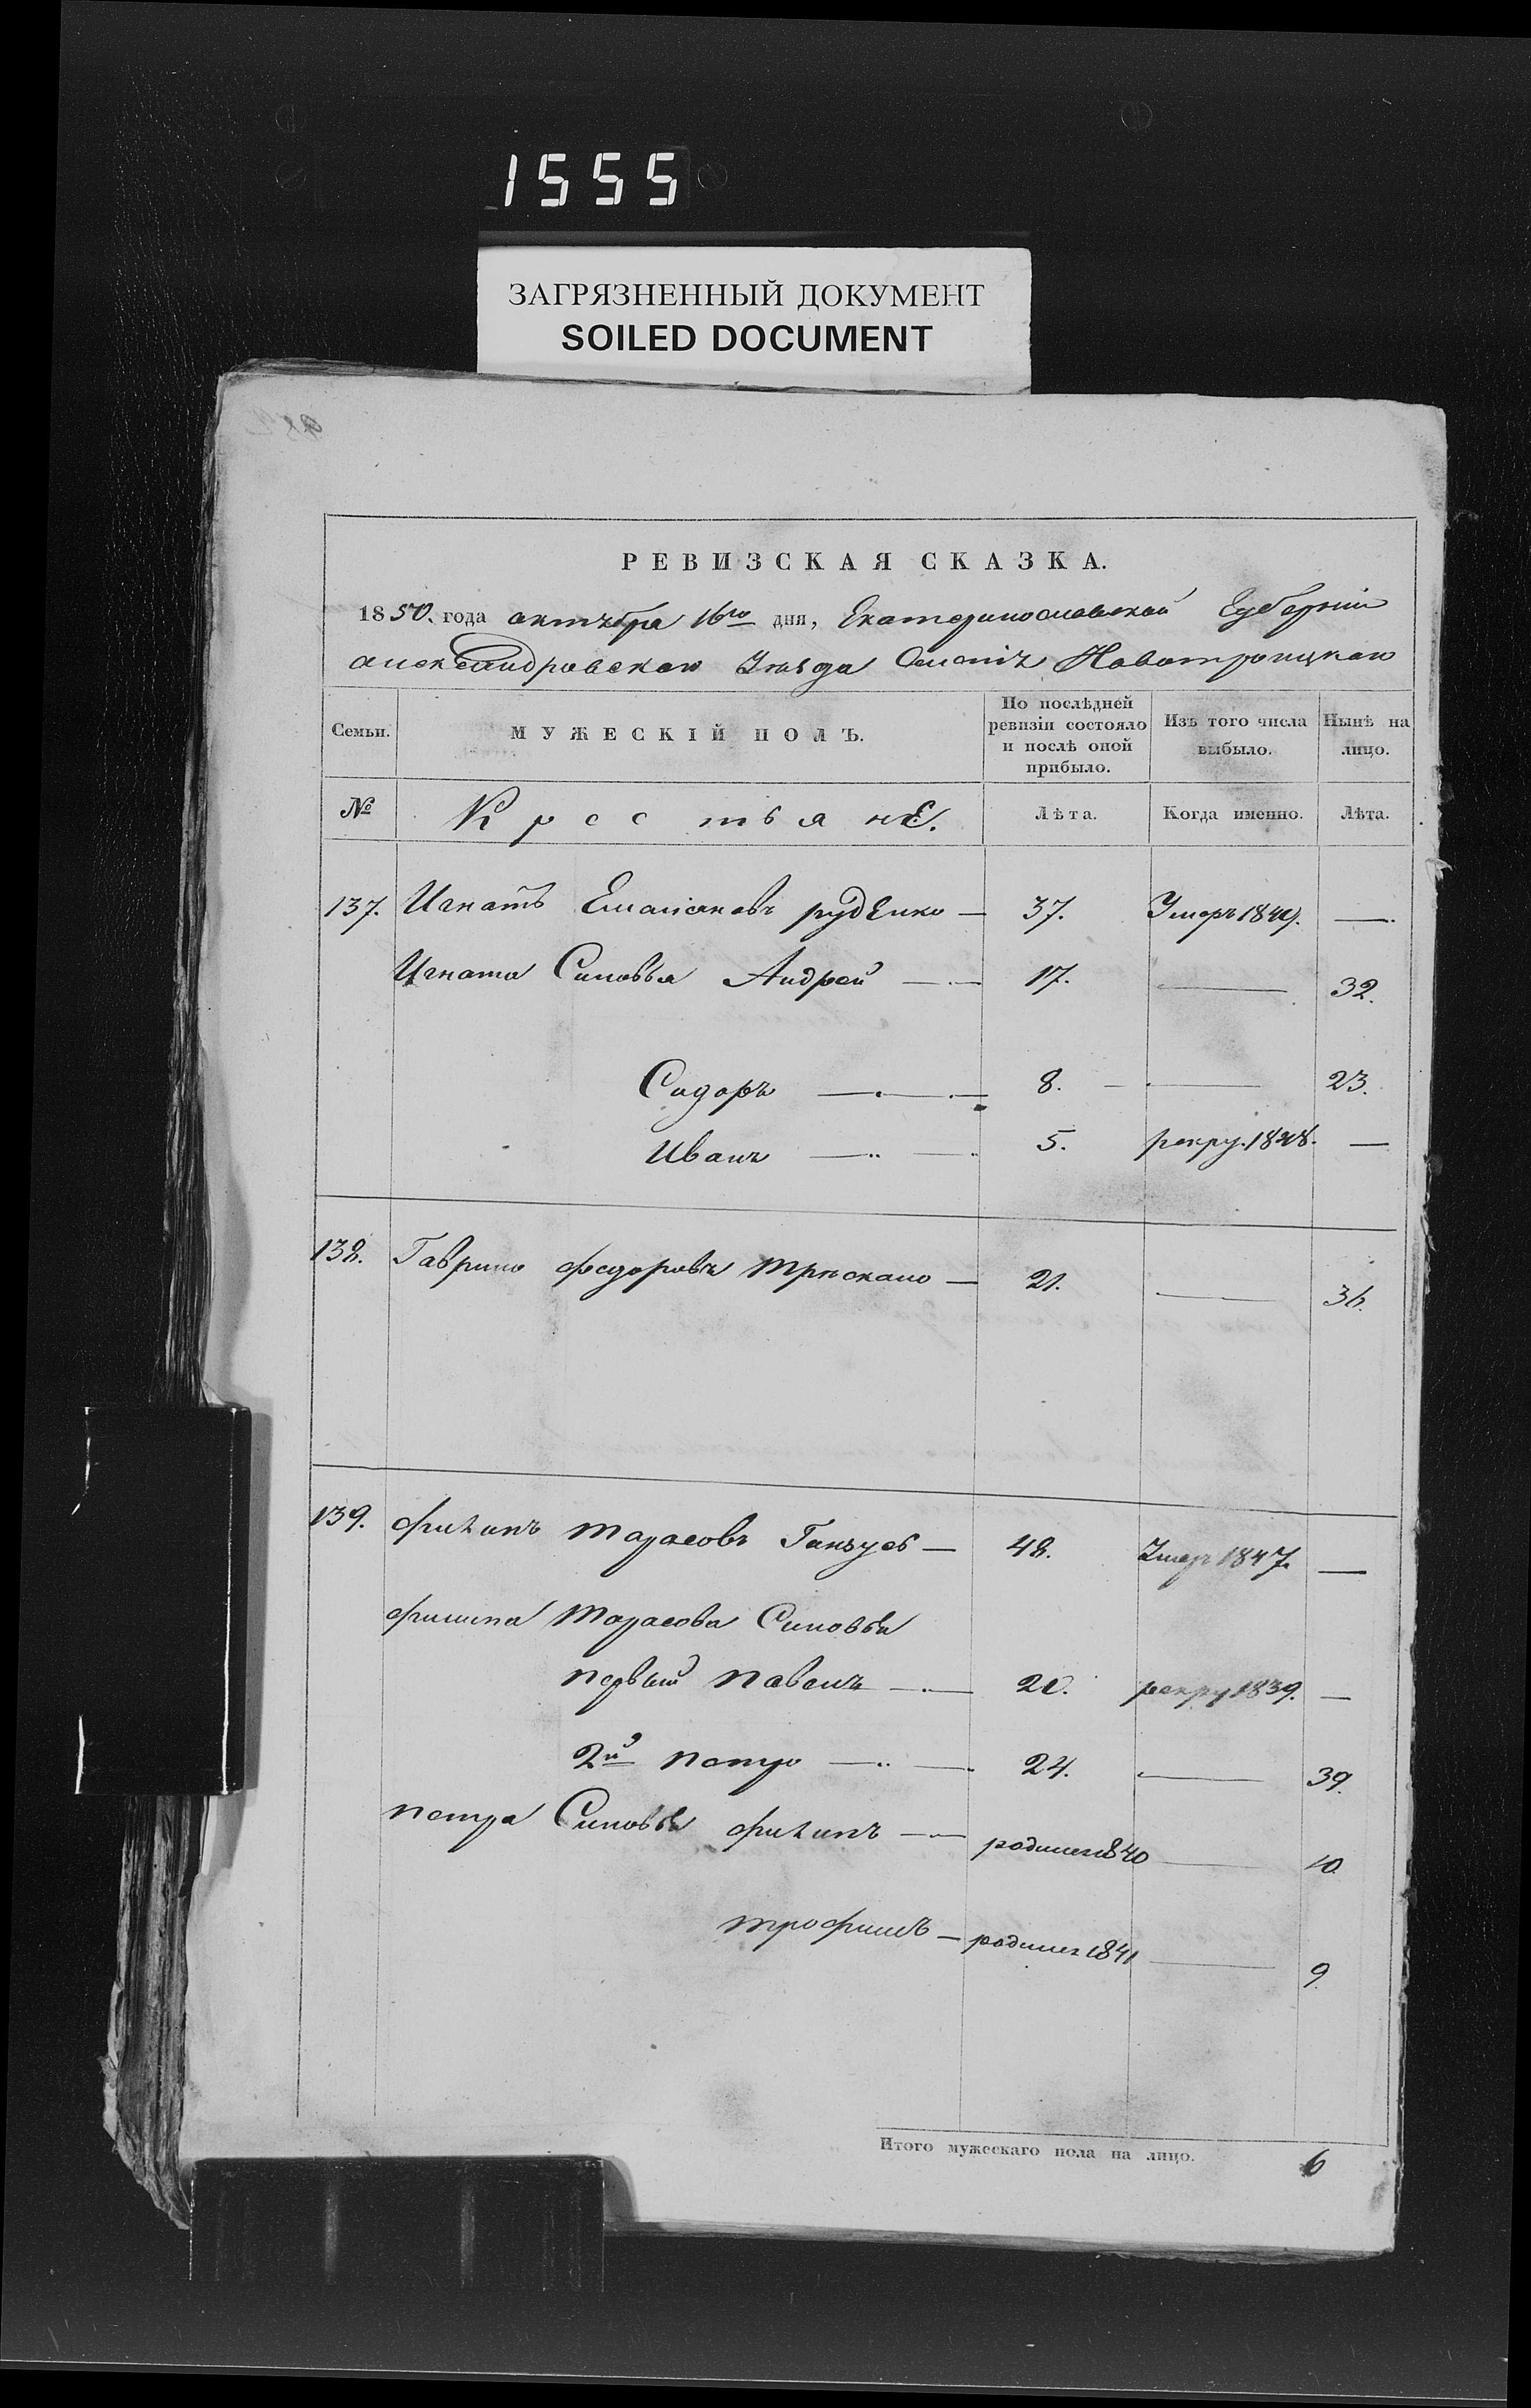 1555
ЗАГРЯЗНЕННЫЙ ДОКУМЕНТ
SOILED DOCUMENT
РЕВИЗСКАЯ СКАЗКА.
1850. года октября 16го дня, Екатеринославской Губернии
александровскаго Уезда Новотроицкаго
Семьи. МУЖЕСКІЙ ПОЛЪ. По послѣдней ревизіи состояло и послѣ оной прибыло. Изъ того числа выбыло. Нынѣ на лицо.
№ Крестьяне. Лѣта. Когда именно. Лѣта.
137. Игнатъ Емельяновъ руденко — 37. Умеръ 1849. —
Игната Синовья Андрей — 17. — 32.
Сидоръ — 8. — 23.
Иванъ — 5. рекру. 1848. —
138. Гаврило федоровъ — 21. — 36.
139. филипъ тарасовъ — 48. Умеръ 1847. —
филипа Тарасова Синовья
первый павелъ — 20. рекру 1839. —
2й петро — 24. — 39.
петра Синовья филипъ — родился 1840 — 10.
трофимъ — родился 1841 — 9.
Итого мужескаго пола на лицо. 6